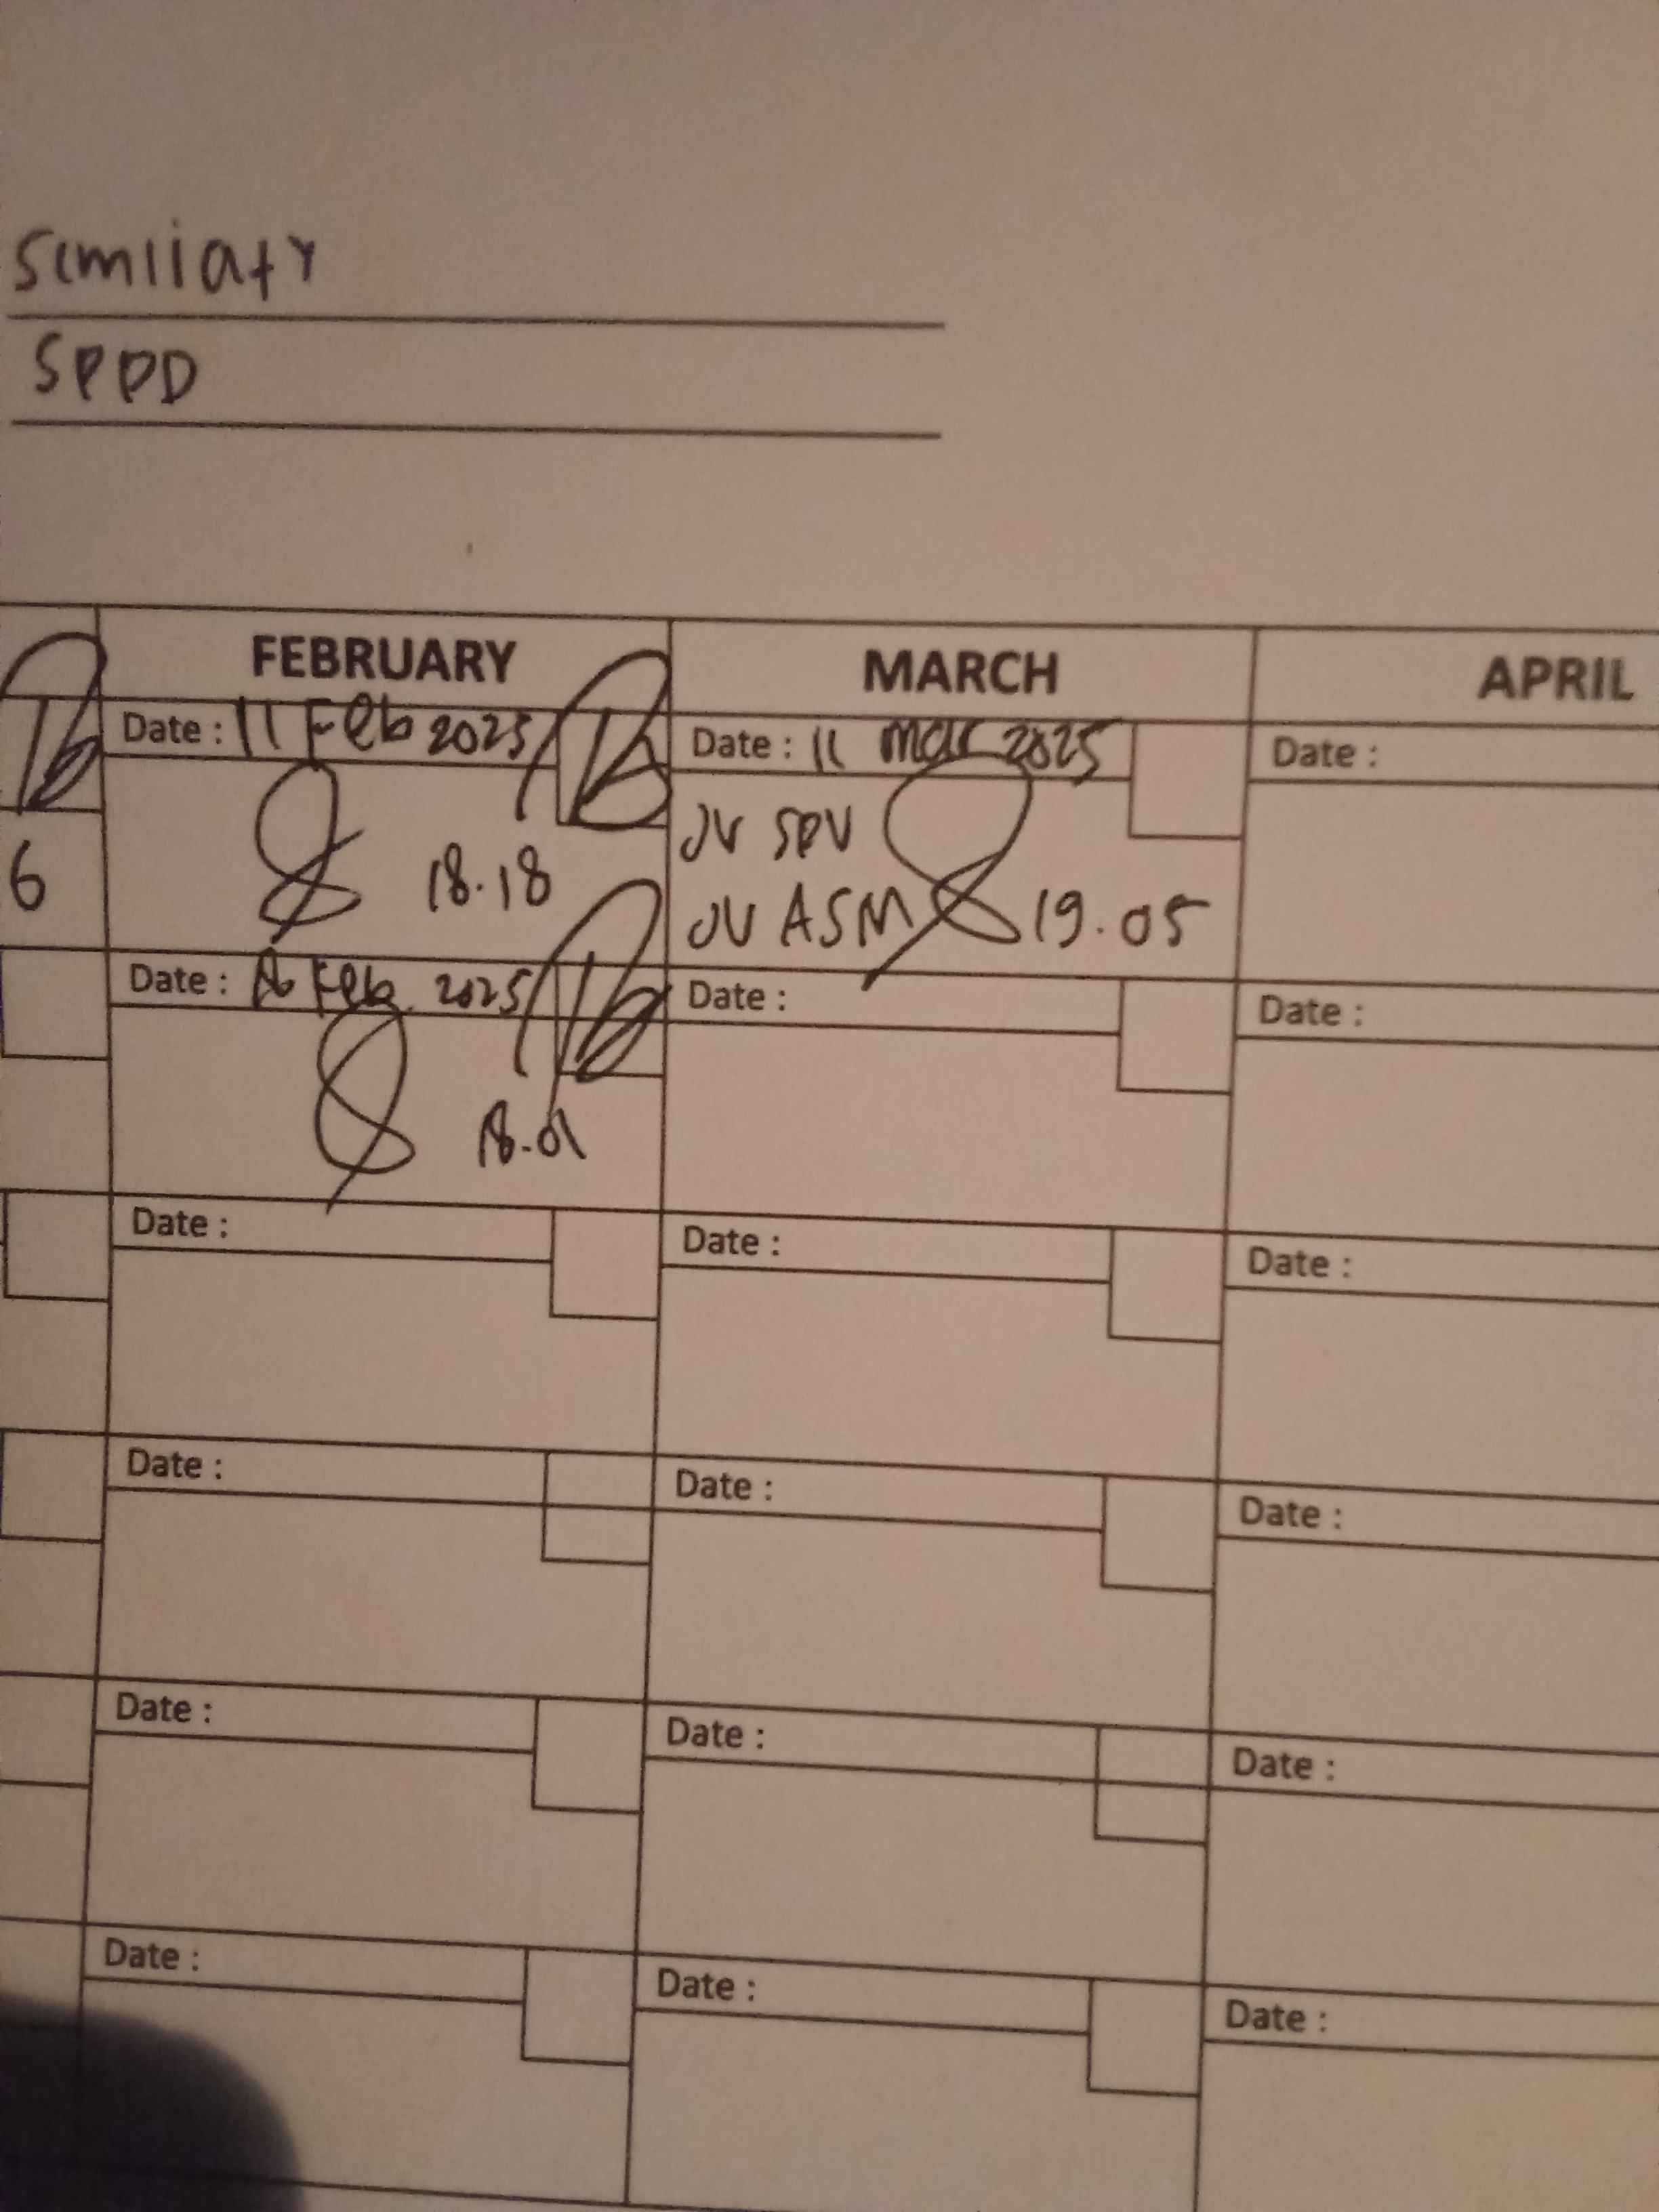 SPPD
FEBRUARY MARCH APRIL
Date : 11 Feb 2025 Date : 11 mar 2025 Date :
6 18.18 JV SPV
JV ASM 19.05
Date : Feb 2025 Date : Date :
18.01
Date : Date : Date :
Date : Date : Date :
Date : Date : Date :
Date : Date : Date :